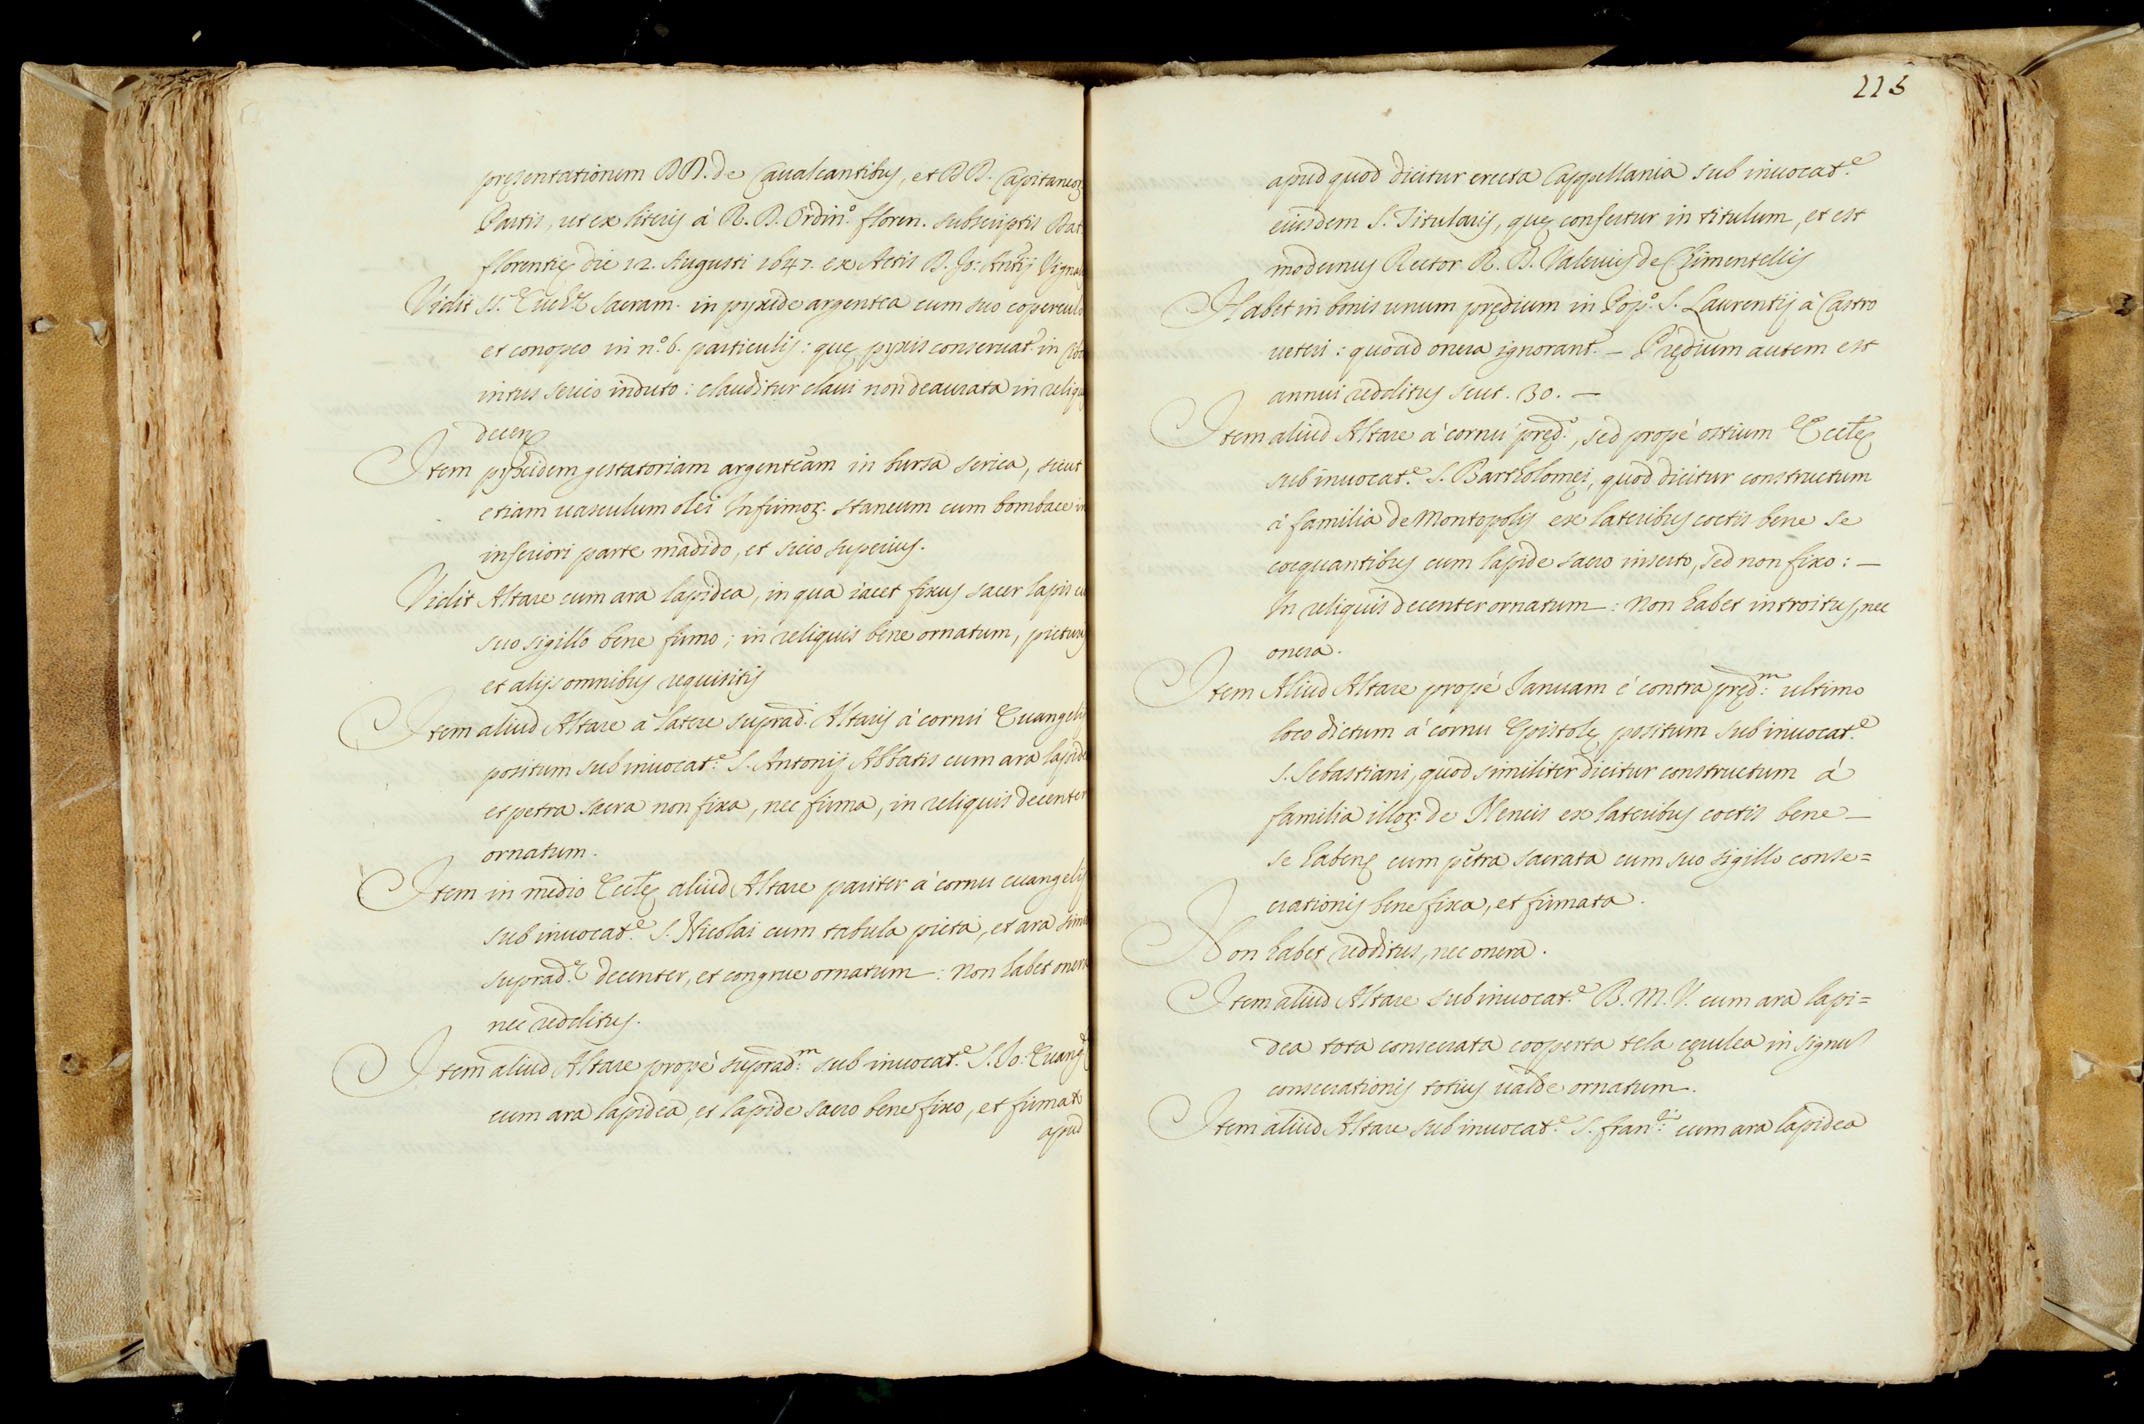 pręsentationem DD. de Caualcantibus, et DD. Capitaneoꝝ
Partis, ut ex literis à R. D. Ordin.º floren. subscriptis Dat.
florentię die 12. Augusti 1647. ex Actis D. Jo: Antij Vignal
Vidit SS. Euch.e Sacram. in pyxide argentea cum suo coperculo
et conopeo in n.º 6. particulis: quę pyxis conseruat. in
intus serico induto: clauditur claui non deaurata in reliq
decenę
Item pyxidem gestatoriam argenteam in bursa serica, sicut
etiam uasculum olei Infirmoꝝ. staneum cum bombace in
inferiori parte madido, et sicco superius.
Vidit Altare cum ara lapidea, in qua iacet fixus sacer lapis cu
suo sigillo bene firmo; in reliquis bene ornatum, pictura
et alijs omnibus requisitis
Item aliud Altare a latere suprad.i Altaris à cornu Euangelij
positum sub inuocat.e S. Antonij Abbatis cum ara lapide
et petra sacra non fixa, nec firma, in reliquis decenter
ornatum.
Item in medio Eccłę aliud Altare pariter à cornu euangelij
sub inuocat.e S. Nicolai cum tabula picta, et ara simi
suprad.e decenter, et congrue ornatum: Non habet onera
nec redditus.
Item aliud Altare propè suprad.m sub inuocat.e S. Jo: Euang.
cum ara lapidea, et lapide sacro bene fixo, et firmato
apud
115
apud quod dicitur erecta Cappellania sub inuocat.e
eiusdem S. Titularis, quę confertur in titulum, et est
modernus Rector R. D. Valerius de Chimentellis
Habet in bonis unum prędium in Pop.º S. Laurentij à Castro
ueteri: quoad onera ignorant. – Prędium autem est
annui redditus scut. 30. –
Item aliud Altare à cornu pręd.º, sed propè ostium Eccłę
sub inuocat.e S. Bartholomęi, quod dicitur constructum
à familia de Montopolis ex lateribus coctis bene se
coequantibus cum lapide sacro inserto, sed non fixo: –
In reliquis decenter ornatum: Non habet introitus, nec
onera.
Item Aliud Altare propè Januam è contra pręd.m ultimo
loco dictum à cornu Epistolę positum sub inuocat.e
S. Sebastiani, quod similiter dicitur constructum à
familia illoꝝ. de Nencis ex lateribus coctis bene –
se habenę cum petra sacrata cum suo sigillo conse=
crationis bene fixa, et firmata.
Non habet redditus, nec onera.
Item aliud Altare sub inuocat.e B. M. V. cum ara lapi=
dea tota consecrata cooperta tela cęrulea in signu
consecrationis totius ualde ornatum.
Item aliud Altare sub inuocat.e S. fran.ci cum ara lapidea